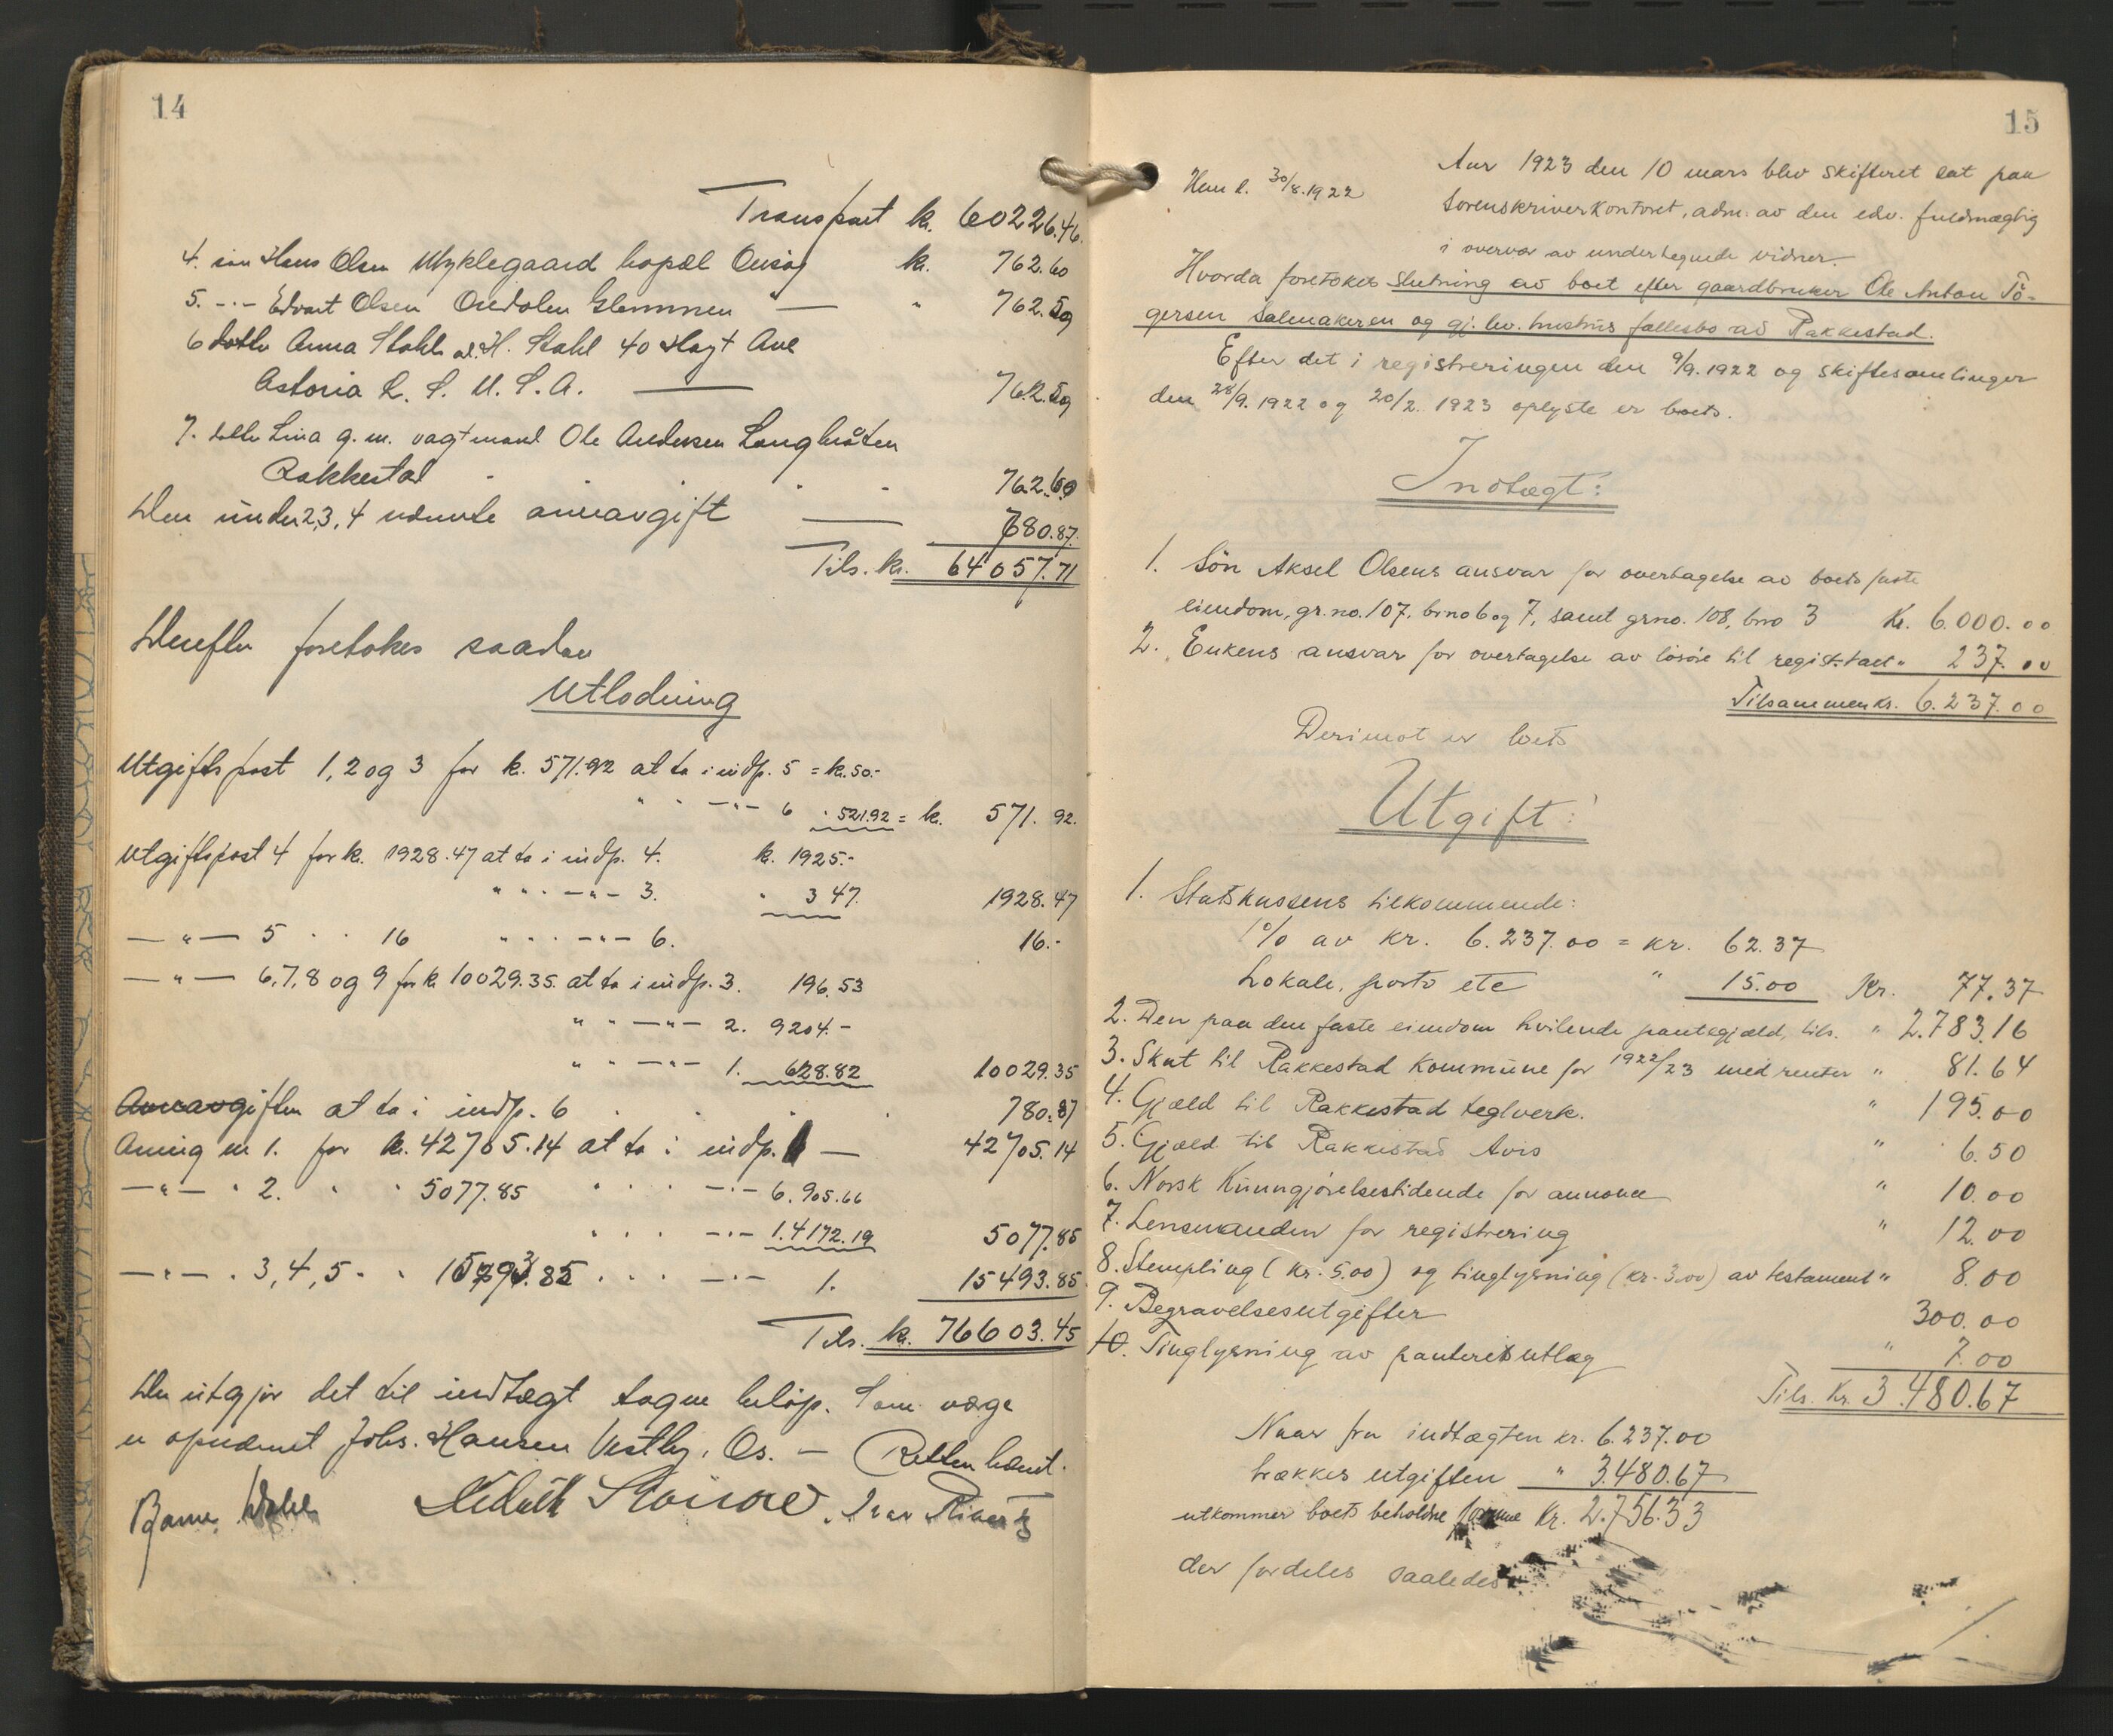 14
Transport kr. 60226.46.
4. søn Hans Olsen Myklegaard bopæl Onsøy kr. 762.60
5. -"- Edvart Olsen Oredalen Glemmen — " 762.59
6 datter Anna Stahl H. Stahl 40 Hoyt Ave
Astoria L. I. U. S. A. — 762.59
7. datter Lina g. m. vagtmand Ole Andersen Langbråten
Rakkestad 762.60
Den under 2,3,4 nævnte arveavgift — 780.87.
Tils. kr. 64057.71
Derefter foretokes saadan
Utlodning
Utgiftspost 1, 2 og 3 for kr. 571.92 at ta i indp. 5 = kr. 50.-
" " -"- 6 " 521.92 = kr. 571.92.
Utgiftspost 4 for kr. 1928.47 at ta i indp. 4. kr. 1925.-
" " -"- 3. " 3 47. 1928.47
-"- 5 " " 16 " " " -"- 6. 16.-
-"- 6, 7, 8 og 9 for kr 10029.35. at ta i indp. 3. 196.53
" " -"- 2. 9204.-
" " -"- 1. 628.82 10029.35
Arveavgiften at ta i indp. 6 780.87
Arving nr 1. for kr. 42705.14 at ta i indp. 1 — 42705.14
-"- " 2. " " 5077.85 " " " -"- 6. 905.66
" " " -"- 1. 4172.19 5077.85
-"- " 3, 4, 5 " " 15493.85 " " " -"- 1. 15493.85
Tils. kr. 76603.45
Der utgjør det til indtægt tagne beløp. Som værge
er opnævnt Johs. Hansen Vestby, Os. — Retten hævet.
15
Aar 1923 den 10 mars blev skifteret sat paa
Sorenskriverkontoret, adm. av den edv. fuldmægtig
i overvær av undertegnede vidner.
30/8.1922
Hvorda foretokes slutning av boet efter gaardbruker Ole Anton Tö-
gersen Salmakeren og gj. lev. hustrus fællesbo av Rakkestad.
Efter det i registreringen den 9/9. 1922 og skiftesamlinger
den 28/9. 1922 og 20/2. 1923 oplyste er boets.
Indtægt:
1. Sön Aksel Olsens ansvar for overtagelse av boets faste
eiendom, gr.no. 107, brno 6 og 7, samt grno. 108, brno 3 Kr. 6.000.00
2. Enkens ansvar for overtagelse av lösöre til regist.takst " 237.00
Tilsammen kr. 6.237.00
Derimot er boets
Utgift:
1. Statskassens tilkommende:
1% av kr. 6.237.00 = kr. 62.37
Lokale, porto etc " 15.00 Kr. 77.37
2. Den paa den faste eiendom hvilende pantegjæld, tils. " 2.783.16
3. Skat til Rakkestad kommune for 1922/23 med renter " 81.64
4. Gjæld til Rakkestad teglverk. " 195.00
5. Gjæld til Rakkestad Avis " 6.50
6. Norsk Kunngjørelsestidende for annonce " 10.00
7. Lensmanden for registrering " 12.00
8. Stempling (kr. 5.00) og tinglysning (kr. 3.00) av testament " 8.00
9. Begravelsesutgifter 300.00
10. Tinglysning av panteretsutlæg " 7.00
Tils. Kr. 3.480.67
Naar fra indtægten kr. 6.237.00
trækkes utgiften " 3.480.67
utkommer boets beholdne formue Kr. 2.756.33
der fordeles saaledes